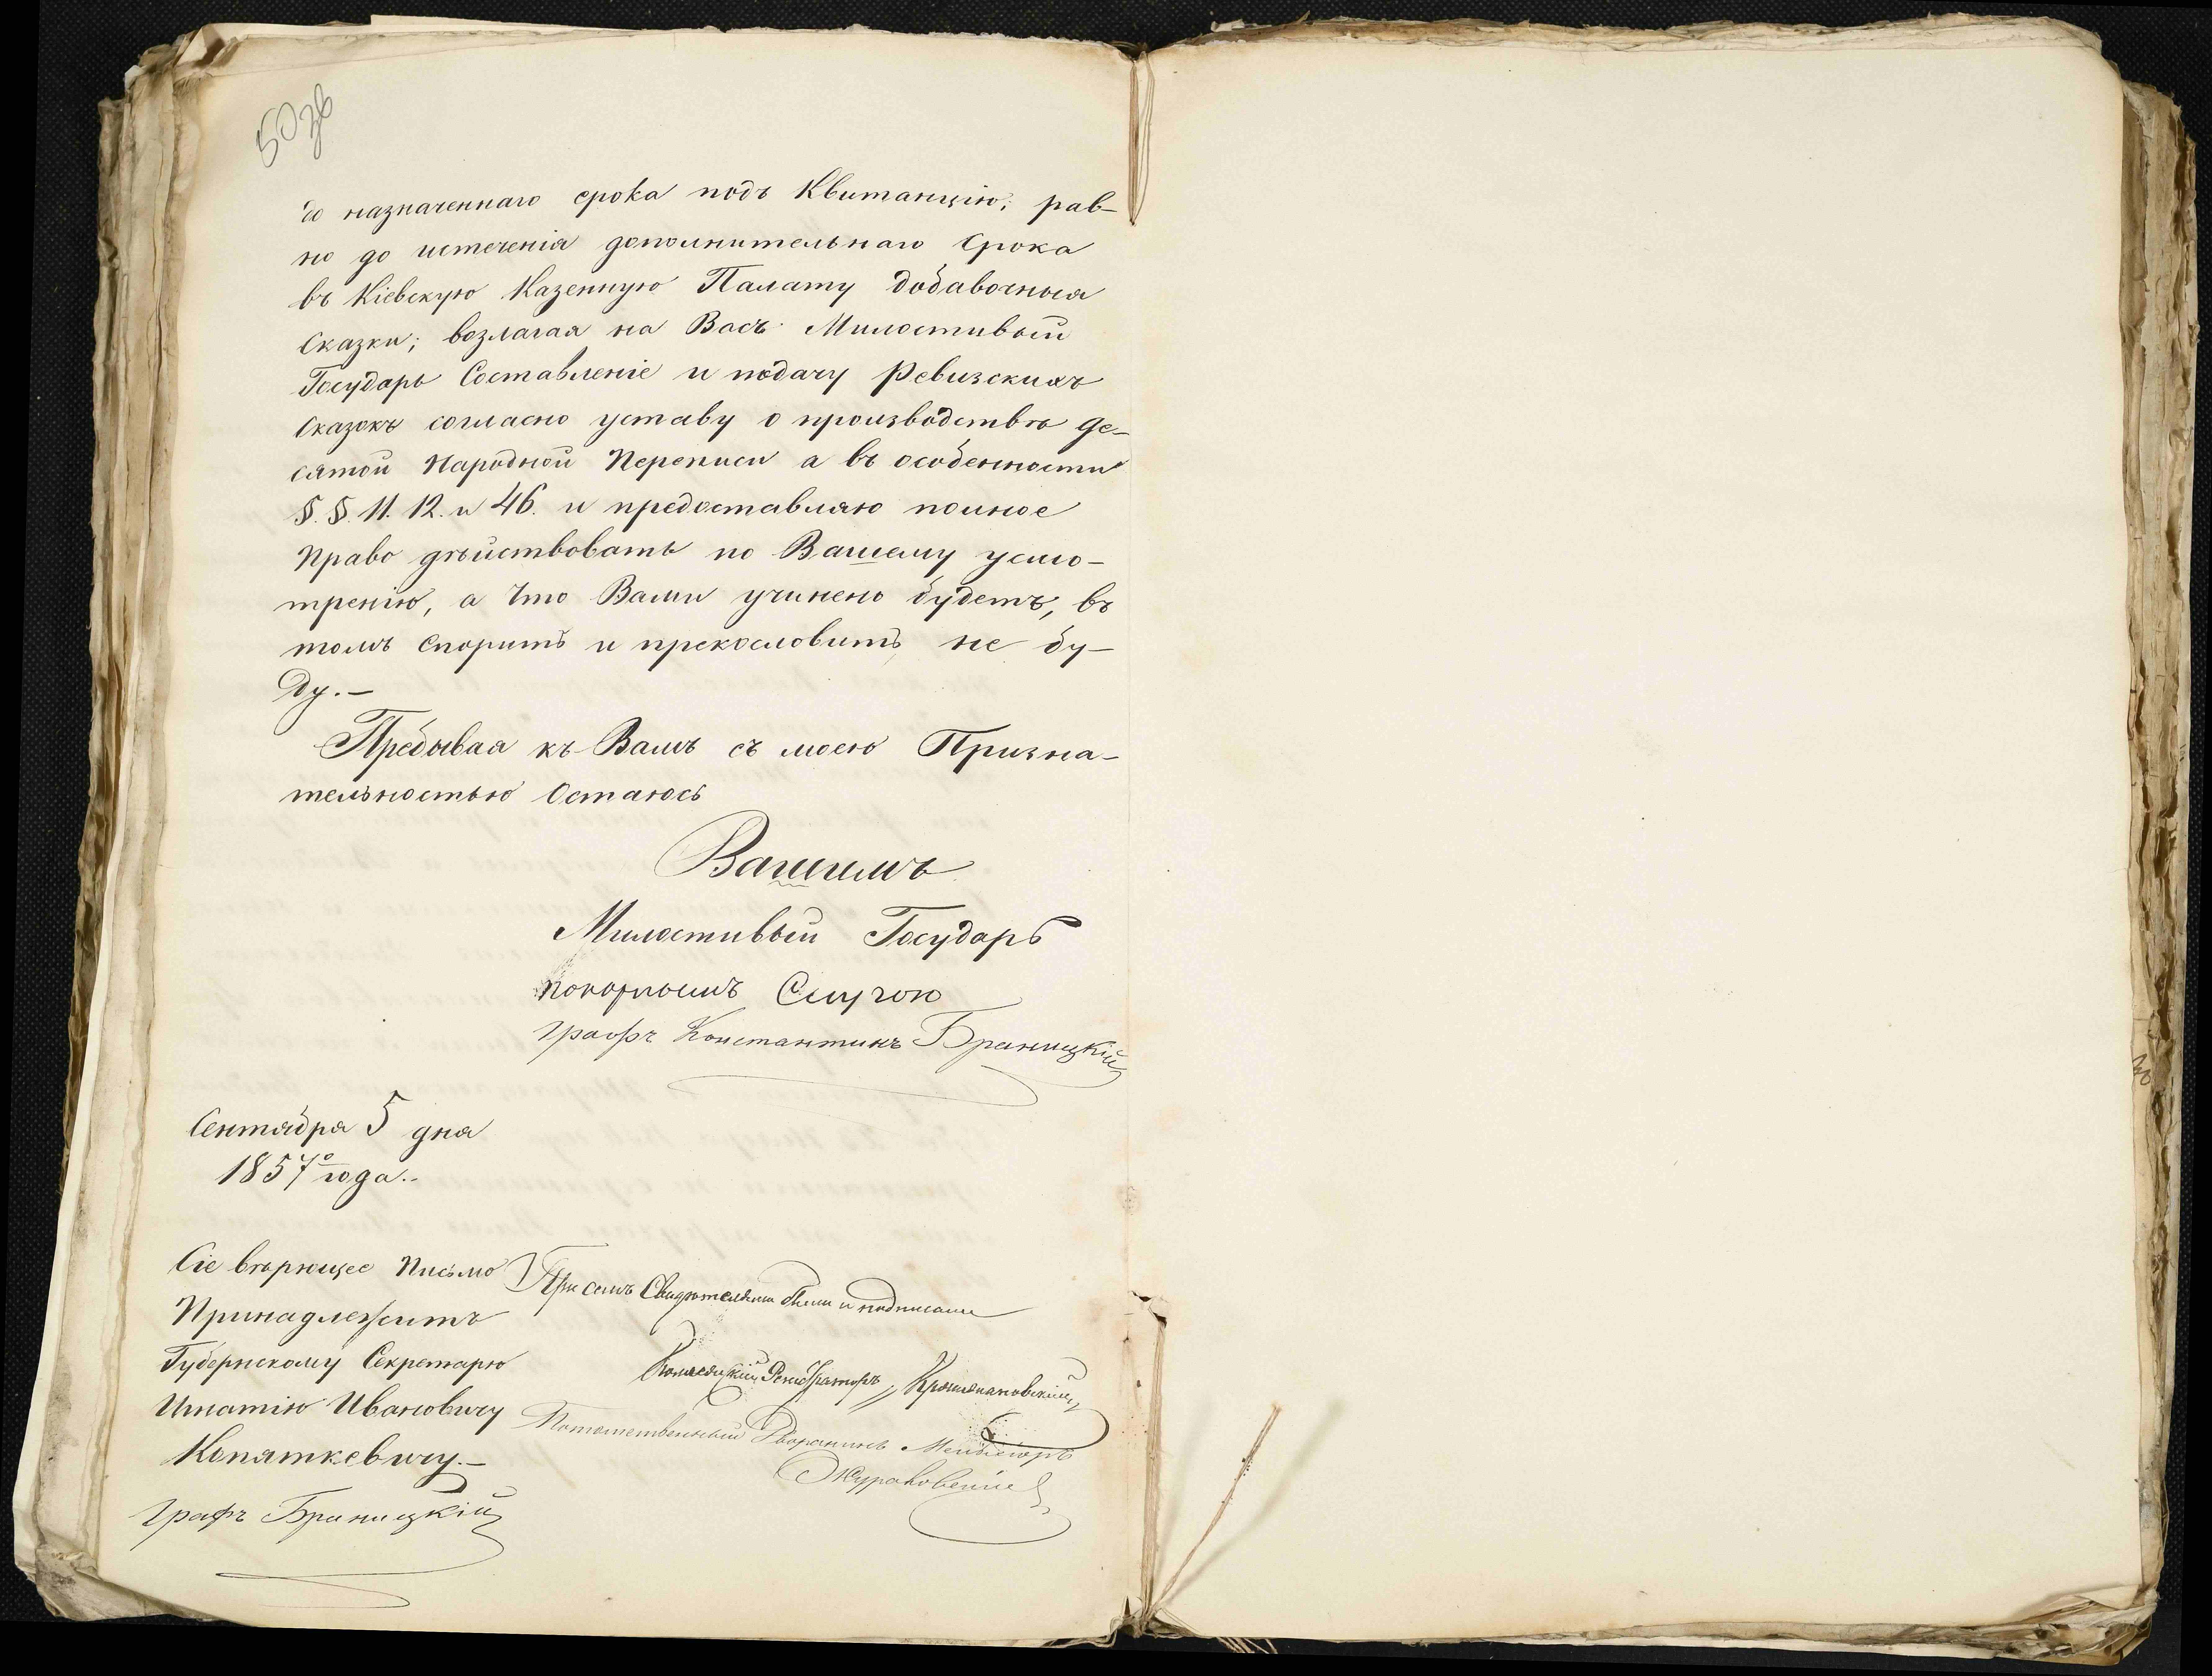 50зв
до назначеннаго срока подъ Квитанцію; рав-
но до истеченія дополнительнаго Срока
въ Кіевскую Казенную Палату добавочныя
Сказки; возлагая на Васъ Милостивый
Государь Составленіе и подачу Ревизскихъ
Сказокъ согласно уставу о производствѣ де-
сятой Народной Переписи а въ особенности
§.§. 11. 12. и 46. и предоставляю полное
Право дѣйствовать по Вашему усмо-
трению, а Что Вами учинено будетъ, въ
томъ Спорить и прекословить не бу-
ду.-
Пребывая къ Вамъ съ моею Призна-
тельностью Остаюсь
Вашимъ
Милостивый Государь
покорнымъ Слугою
Графъ Константинъ Браницкій
Сентября 5 дня
1857го года.
Сіе вѣрющее Письмо
Принадлежитъ
Губернскому Секретарю
Игнатію Ивановичу
Копяткевичу.-
Графъ Браницкій
При семъ Свидѣтелями были и подписали
Коллежскій Регистраторъ
Потомственный Дворянинъ
Жураковскій